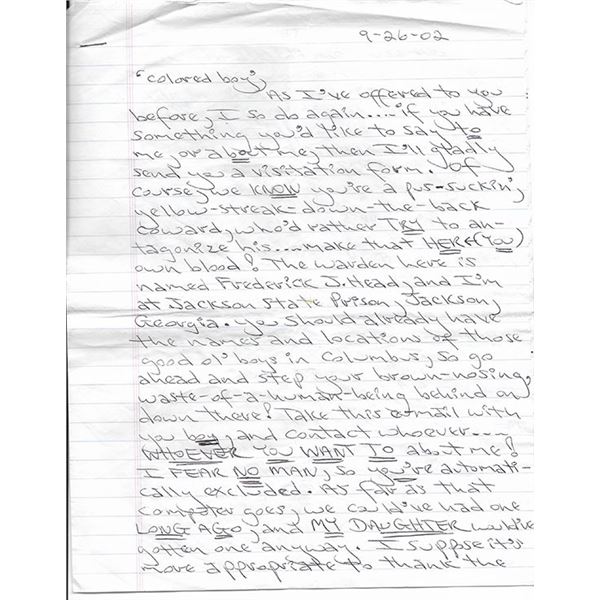 9-26-02
"colored boy",
As I've offered to you
before, I so do again.... if you have
something you'd like to say to
me, or about me, then I'll gladly
send you a visitation form. Of
course, we KNOW you're a pus-suckin',
yellow-streak-down-the-back
coward, who'd rather TRY to an-
tagonize his.... make that HERE(YOU)
own blood! The warden here is
named Frederick J. Head, and I'm
at Jackson State Prison, Jackson,
Georgia. You should already have
the names and locations of those
good ol' boys in Columbus, so go
ahead and step your brown-nosing,
waste-of-a-human-being behind on
down there! Take this e-mail with
you boy, and contact whoever....
WHOEVER YOU WANT TO about me!
I FEAR NO MAN, so you're automati-
cally excluded. As far as that
computer goes, we could've had one
LONG AGO, and MY DAUGHTER would've
gotten one anyway. I suppose it's
more appropriate to thank the